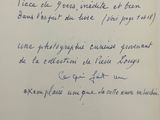 Pièce de vers, inédite et bien
dans l'esprit du livre (voir pages 1 et 18)
une photographie curieuse provenant
de la collection de Pierre Louÿs
Ce qui fait un
exemplaire unique de cette